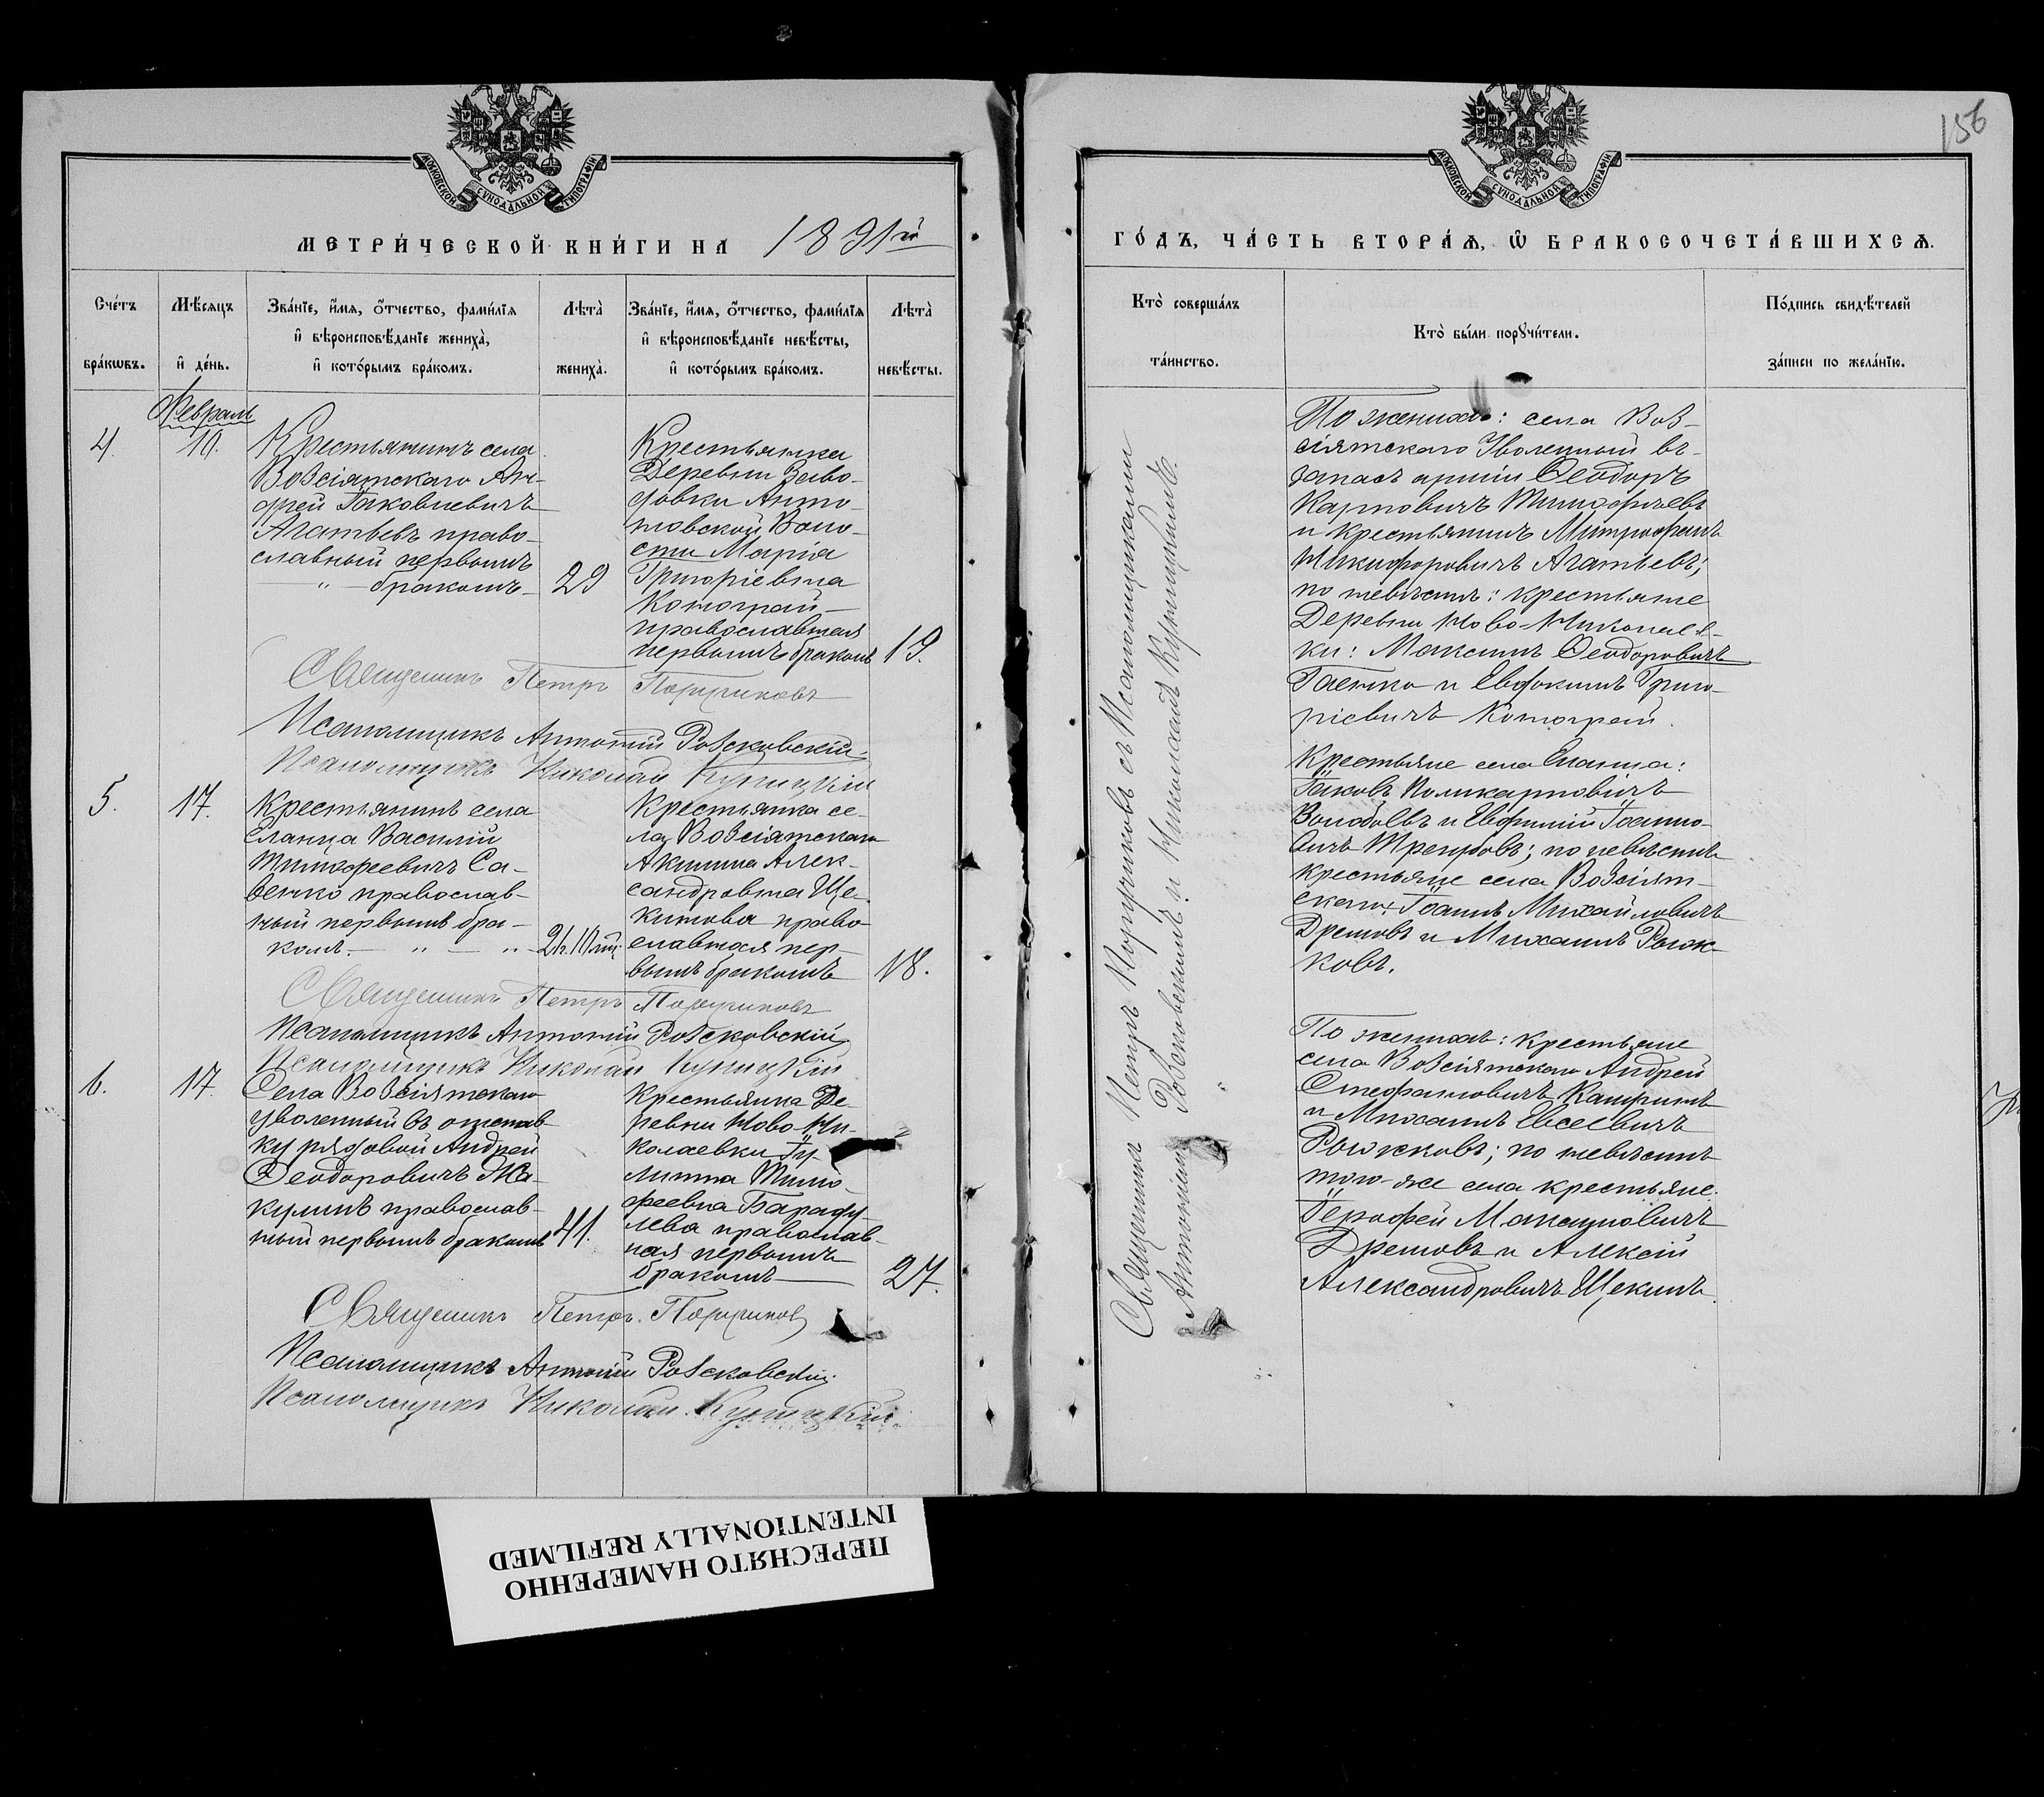 156
МОСКОВСКОЙ СѴНОДАЛЬНОЙ ТИПОГРАФІИ
МЕТРИ́ЧЕСКОЙ КНИ́ГИ НА 1891й
Сче́тъ бра́кѡвъ.
Мѣ́сяцъ и҆ де́нь.
Зва́нїе, и҆́мѧ, ѻ҆́тчество, фами́лїѧ
и҆ вѣроисповѣ́данїе жениха̀,
и҆ кото́рымъ бра́комъ.
Лѣта̀ жениха̀.
Зва́нїе, и҆́мѧ, ѻ҆́тчество, фами́лїѧ
и҆ вѣроисповѣ́данїе невѣ́сты,
и҆ кото́рымъ бра́комъ.
Лѣта̀ невѣ́сты.
Февраль
4.
10.
Крестьянинъ села
Возсіятскаго Ан-
дрей Іаковлевичъ
Агатьевъ право-
славный первымъ
" — бракомъ —
29
Крестьянка
Деревни
Анто-
новской Воло-
сти Марія
Григоріевна
Коноград —
православная
первымъ бракомъ
19.
Священникъ Петръ Поручиковъ
Псаломщикъ Антоній Розсковскій
Псаломщикъ Николай Куницкій
5.
17.
Крестьянинъ села
Еланца Василій
Тимофеевичъ Са-
венко православ-
ный первымъ бра-
комъ. — " — "
Крестьянка се-
ла Возсіятскаго
Акилина Алек-
сандровна Ще-
кинова право-
славная пер-
вымъ бракомъ
18.
Священникъ Петръ Поручиковъ
Псаломщикъ Антоній Розсковскій
Псаломщикъ Николай Куницкій
6.
17.
Села Возсіятскаго
уволенный въ отстав-
ку рядовой Андрей
Ѳеодоровичъ
православ-
ный первымъ бракомъ
41.
Крестьянка Де-
ревни Ново-Ни-
колаевки Іу-
литта Тимо-
феевна Бараду-
лева православ-
ная первымъ
бракомъ —
27.
Священникъ Петръ Поручиковъ
Псаломщикъ Антоній Розсковскій
Псаломщикъ Николай Куницкій
МОСКОВСКОЙ СѴНОДАЛЬНОЙ ТИПОГРАФІИ
ГО́ДЪ, ЧА́СТЬ ВТОРА́Ѧ, Ѽ БРАКОСОЧЕТА́ВШИХСѦ.
Кто̀ соверша́лъ та́инство.
Кто̀ бы́ли порꙋчи́тели.
По́дпись свидѣ́телей за́писи по жела́нїю.
Священникъ Петръ Поручиковъ съ Псаломщиками
Антоніемъ Розсковскимъ и Николаемъ Куницкимъ.
По женихѣ: села Воз-
сіятскаго Уволенный въ
запасъ арміи Ѳеодоръ
Карповичъ Тимофеевъ
и крестьянинъ Митрофанъ
Никифоровичъ Агатьевъ;
по невѣстѣ: крестьяне
Деревни Ново-Николаев-
ки: Максимъ Ѳеодоровичъ
Гаенко и Евдокимъ Григо-
ріевичъ Коноград.
Крестьяне села Еланца:
Іаковъ Поликарповичъ
Волобоевъ и Евфимій Іоанно-
вичъ; по невѣстѣ
крестьяне села Возсіят-
скаго: Іоаннъ Михайловичъ
Дремовъ и Михаилъ Рыж-
ковъ.
По женихѣ: крестьяне
села Возсіятскаго Андрей
Стефановичъ Кашринъ
и Михаилъ Евсеевичъ
Рыжковъ; по невѣстѣ
того-же села крестьяне:
Іерофей
Дремовъ и Алексій
Александровичъ Щекинъ.
ПЕРЕСНЯТО НАМЕРЕННО
INTENTIONALLY REFILMED